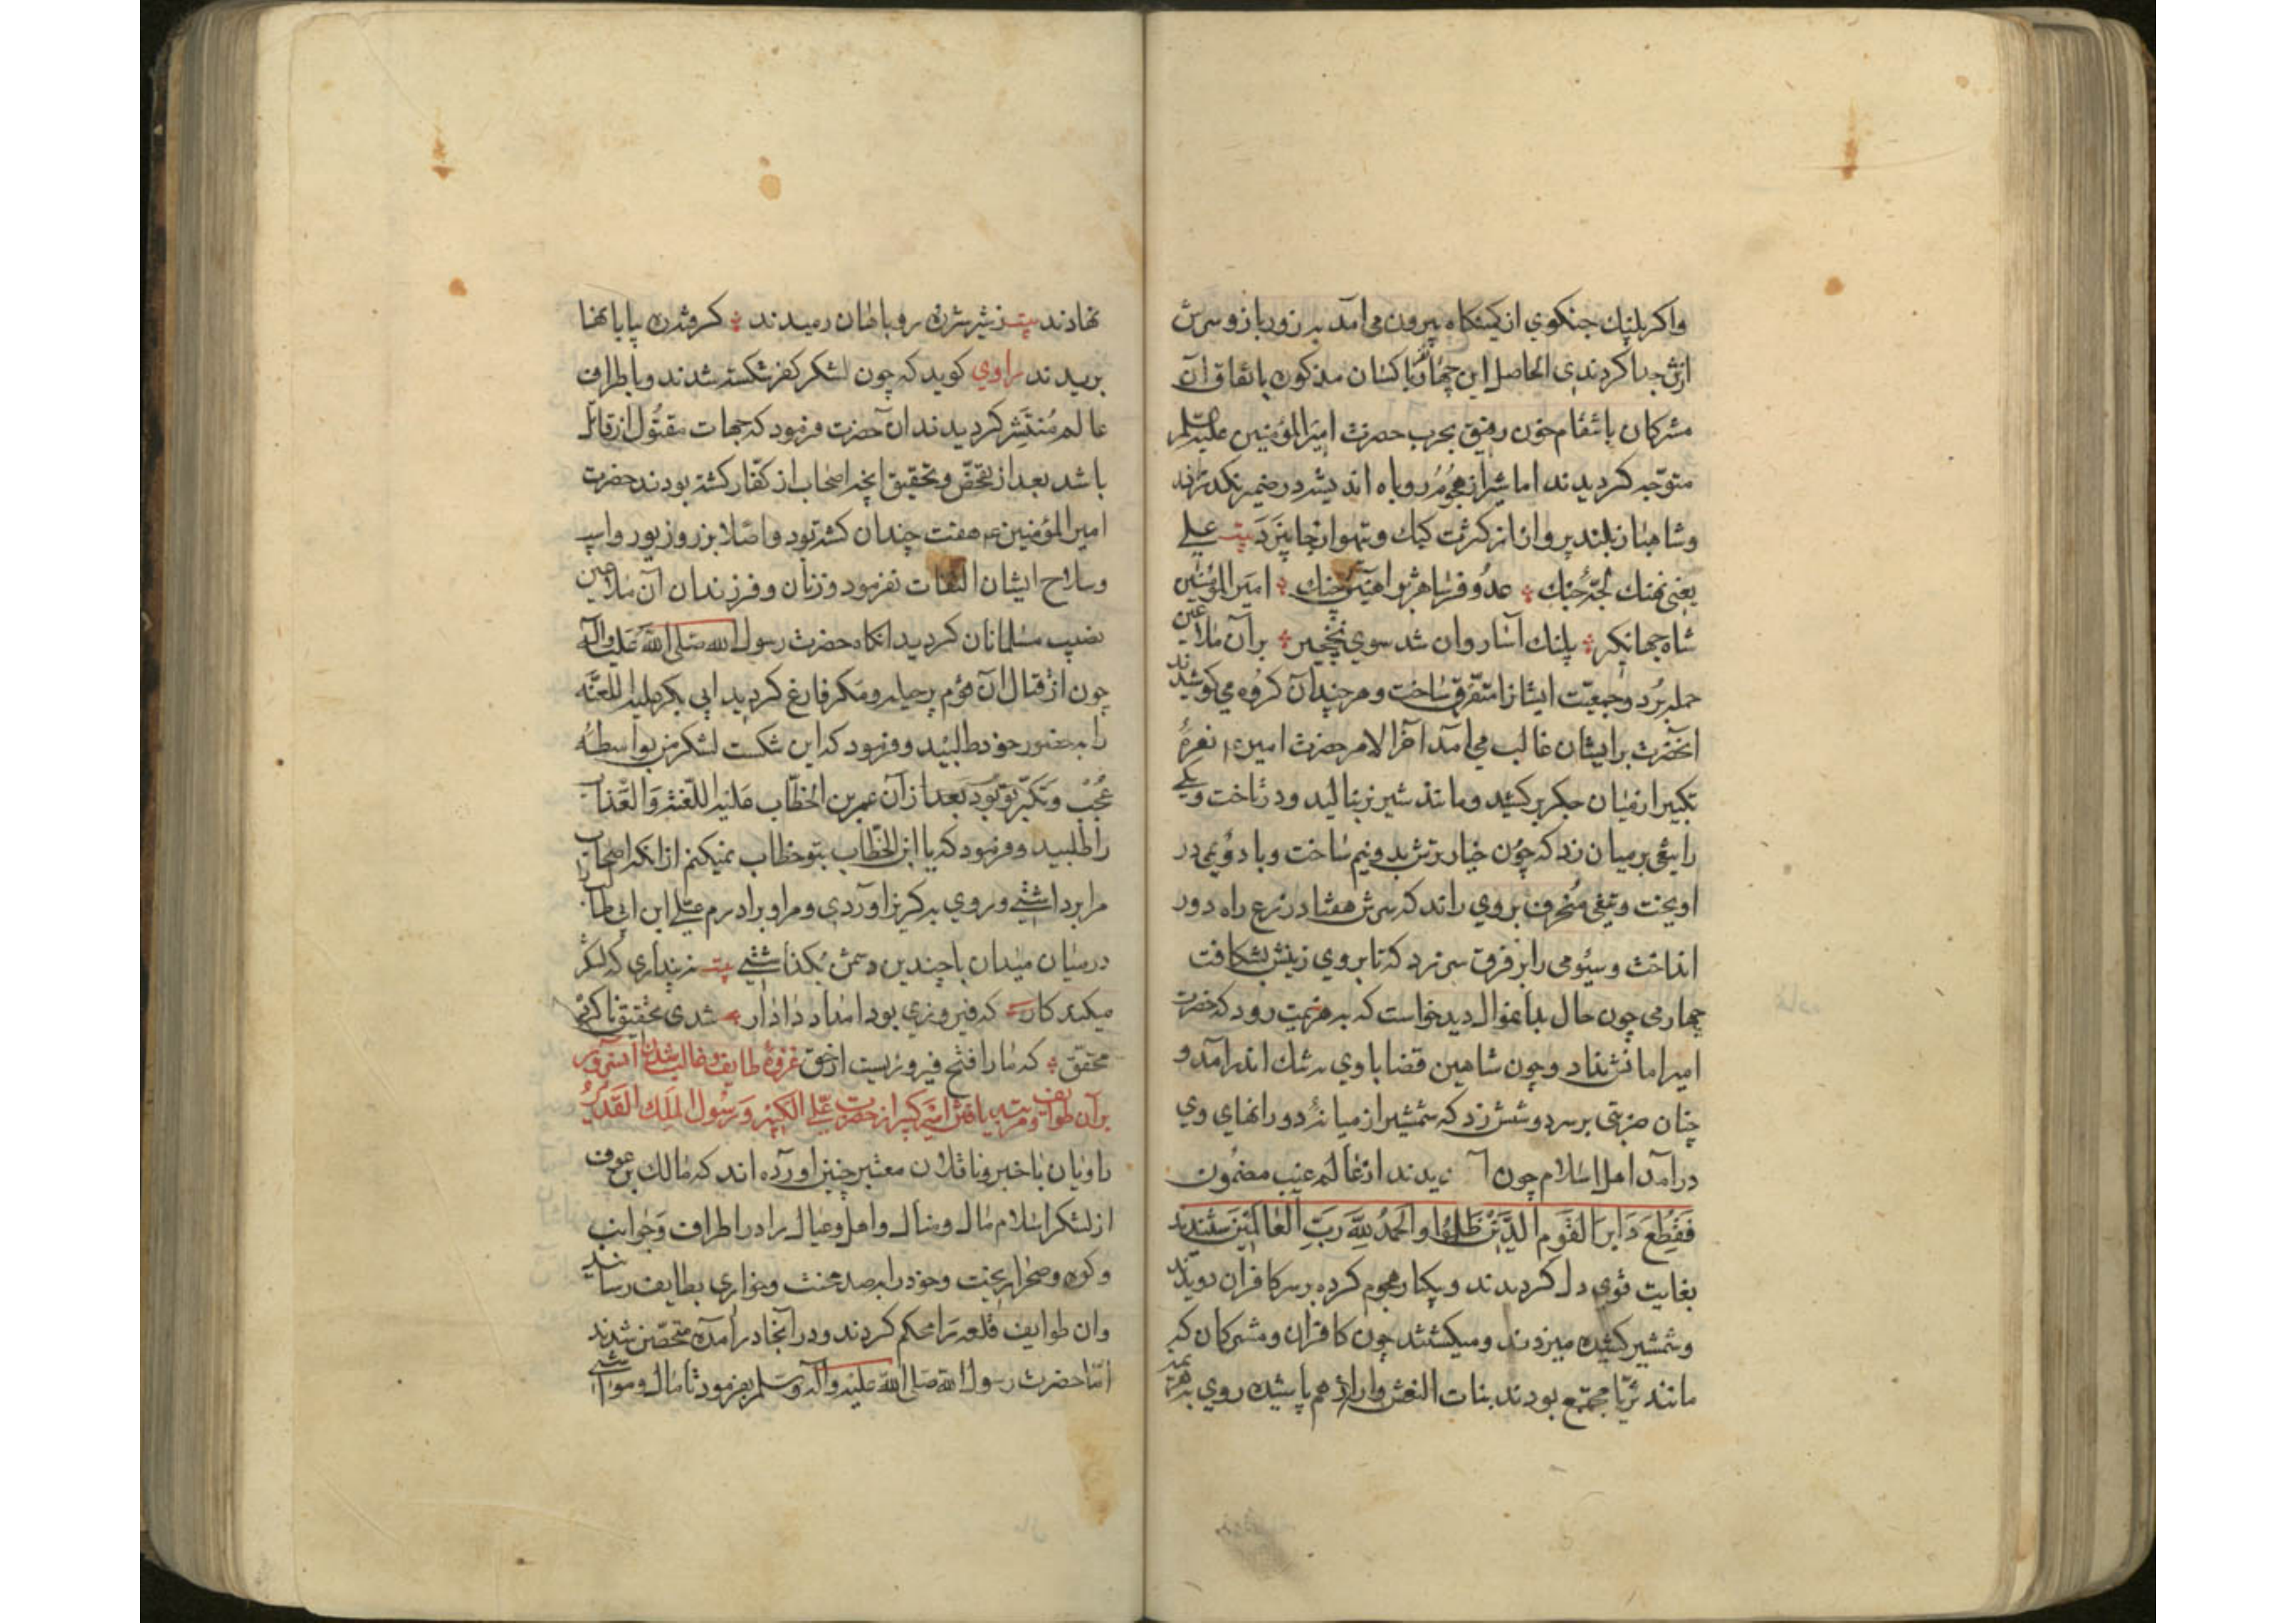 واکر پلنک جنکوی از کمینکاه بیرون می آمد بزور بازو سرش
ازتن جدا کردندی الحاصل این چهار ناکسان مذکور باتفاق آن
مشرکان بانتقام خون رفیق بحرب حضرت امیرالمؤمنین علیه السلم
متوجّه کردیدند اما شیر از هجوم روباه اندیشه در ضمیر نکدراند
وشاهباز بلند پرواز از کثرت کبک وتیهو از جا نپرد بیت علی
یعنی نهنک لجّۀ جنک عدو فرسا هژبر آهنین چنک امیرالمؤمنین
شاه جهانکیر پلنک آسا روان شد سوی نخچیر بر آن ملاعین
حمله برد وجمعیّت ایشانرا متفرّق ساخت وهر چند آن کروه می کوشیدند
آنحضرت بر ایشان غالب می آمد آخر الامر حضرت امیر ع نعرۀ
تکبیر از میان جکر برکشید ومانند شیر نر بنالید ودر تاخت ویکی
را تیغی بر میان زد که چون خیار ترش بدو نیم ساخت وبا دویمی در
آویخت وتیغی منحرف بر وی راند که سرش هفتاد ذرع راه دور
انداخت وسیّومی را بر فرق سر زد که تا بروی زینش بشکافت
چهارمی چون حال بدا نمنوال دید خواست که به هزیمت رود که حضرت
امیر امانش نداد وچون شاهین قضا با وی بر شک اندر آمد و
چنان ضربتی بر سر دوشش زد که شمشیر از میانۀ دو رانهای وی
در آمد اهل اسلام چون آ یدند از عالم غیب مضمون
فَقُطِعَ دَابِرَ القَومِ الَّذِینَ ظَلَمُوا والحَمدُ لِلَّهِ رَبِّ العَالَمِینَ شنیدند
بغایت قوی دل کردیدند ویکبار هجوم کرده بر سر کافران دویدند
وشمشیر کشیده میزدند ومیکشتند چون کافران ومشرکان که
مانند ثریّا مجتمع بودند بنات النعش وار از هم پاشیده روی به هزیمت
نهادند بیت ز شیر شرزه روباهان رمیدند کرفتند ره بیابانها
بریدند راوی کوید که چون لشکر کفر شکسته شدند وباطراف
عالم مُنتَشِر کردیدند آن حضرت فرمود که جهات مقتول از قاتل
باشد بعد از تفحّص وتحقیق آنچه اصحاب از کفّار کشته بودند حضرت
امیرالمؤمنین ع هفت چندان کشته بود واصلا بزر وزیور واسپ
وسلاح ایشان التفات نفرمود وزنان وفرزندان آن ملاعین
نصیب مسلمانان کردید آنکاه حضرت رسول الله صلی الله علیه وآله
چون از قتال آن قوم پر حیله ومکر فارغ کردید ابی بکر علیه اللعنه
را بحضور خود طلبید وفرمود که این شکست لشکر من بواسطۀ
عُجُب وتکبّر تو بود بعد از آن عمر بن الخطّاب علیه اللعنة والعذاب
را طلبید وفرمود که یا ابن الخطّاب بتو خطاب نمیکنم از آنکه اصحاب
مرا برداشتی وروی به کریز آوردی ومرا وبرادرم علی ابن ابی طالب را
در میان میدان با چندین دشمن بکذاشتی بیت نپنداری که لشکر
میکند کار که فیروزی بود امداد دادار شدی تحقیق ناکرده
محقّق که ما را فتح فیروزیست از حق غزوۀ طایف وغالب شدن آن سرور
بر آن طوایف ومرتبه یافتن امیر کبیر از حضرت علی الکبیر ورسول الملک القدیر
راویان با خبر وناقلان معتبر چنین آورده اند که مالک بن عوف
از لشکر اسلام مال ومنال واهل وعیال را در اطراف وجوانب
وکوه وصحرا ریخت وخود را بصد محنت وخواری بطایف رسانید
وآن طوایف قلعه را محکم کردند ودر آنجا در آمده متحصّن شدند
امّا حضرت رسول الله صلی الله علیه وآله وسلم بفرمود تا مال ومواشی